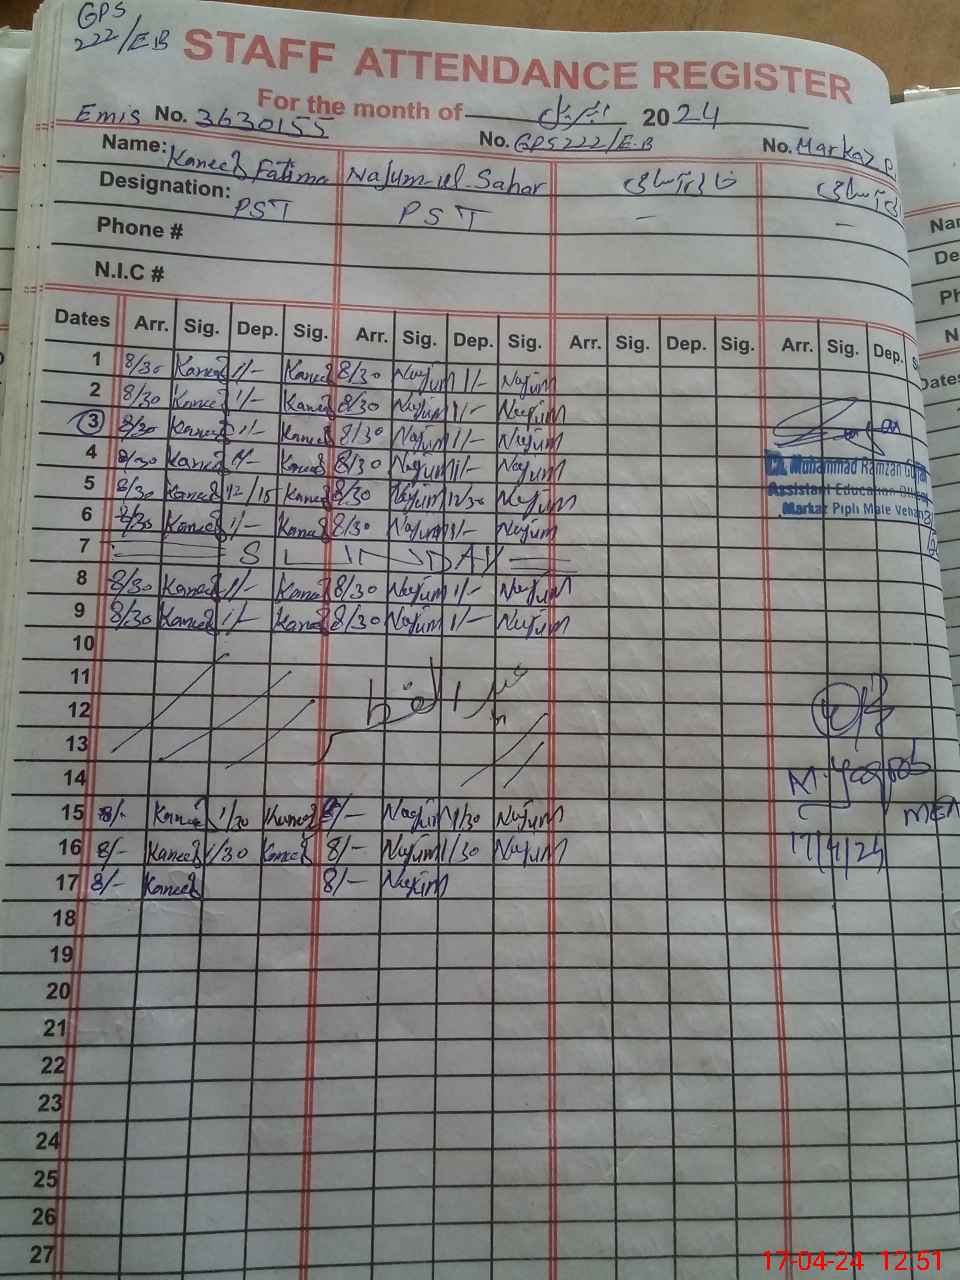 GPS
222/EB
STAFF ATTENDANCE REGISTER
For the month of اپریل 2024
Emis No. 3630155 No. GPS222/E.B No. Markaz P
Name: Kaneez Fatima Najum-ul-Sahar خالی آسامی خالی آسامی
Designation: PST PST – –
Phone #
N.I.C #
Dates Arr. Sig. Dep. Sig. Arr. Sig. Dep. Sig. Arr. Sig. Dep. Sig. Arr. Sig. Dep. S
1 8/30 Kaneez 1/- Kaneez 8/30 Najum 1/- Najum
2 8/30 Kaneez 1/- Kaneez 8/30 Najum 1/- Najum
3 8/30 Kaneez 1/- Kaneez 8/30 Najum 1/- Najum
4 8/30 Kaneez 1/- Kaneez 8/30 Najum 1/- Najum
Ch. Muhammad Ramzan
5 8/30 Kaneez 12/15 Kaneez 8/30 Najum 12/30 Najum
Assistant Education
6 8/30 Kaneez 1/- Kaneez 8/30 Najum 1/- Najum
Markaz Pipli Male
7 SUNDAY
8 8/30 Kaneez 1/- Kaneez 8/30 Najum 1/- Najum
9 8/30 Kaneez 1/- Kaneez 8/30 Najum 1/- Najum
10
11
عید الفطر
12
13
14
M. Yaqoob
15 8/- Kaneez 1/30 Kaneez 8/- Najum 1/30 Najum
MEA
16 8/- Kaneez 1/30 Kaneez 8/- Najum 1/30 Najum
17/4/24
17 8/- Kaneez 8/- Najum
18
19
20
21
22
23
24
25
26
27
Nar
De
Ph
N
Dates
17-04-24 12:51